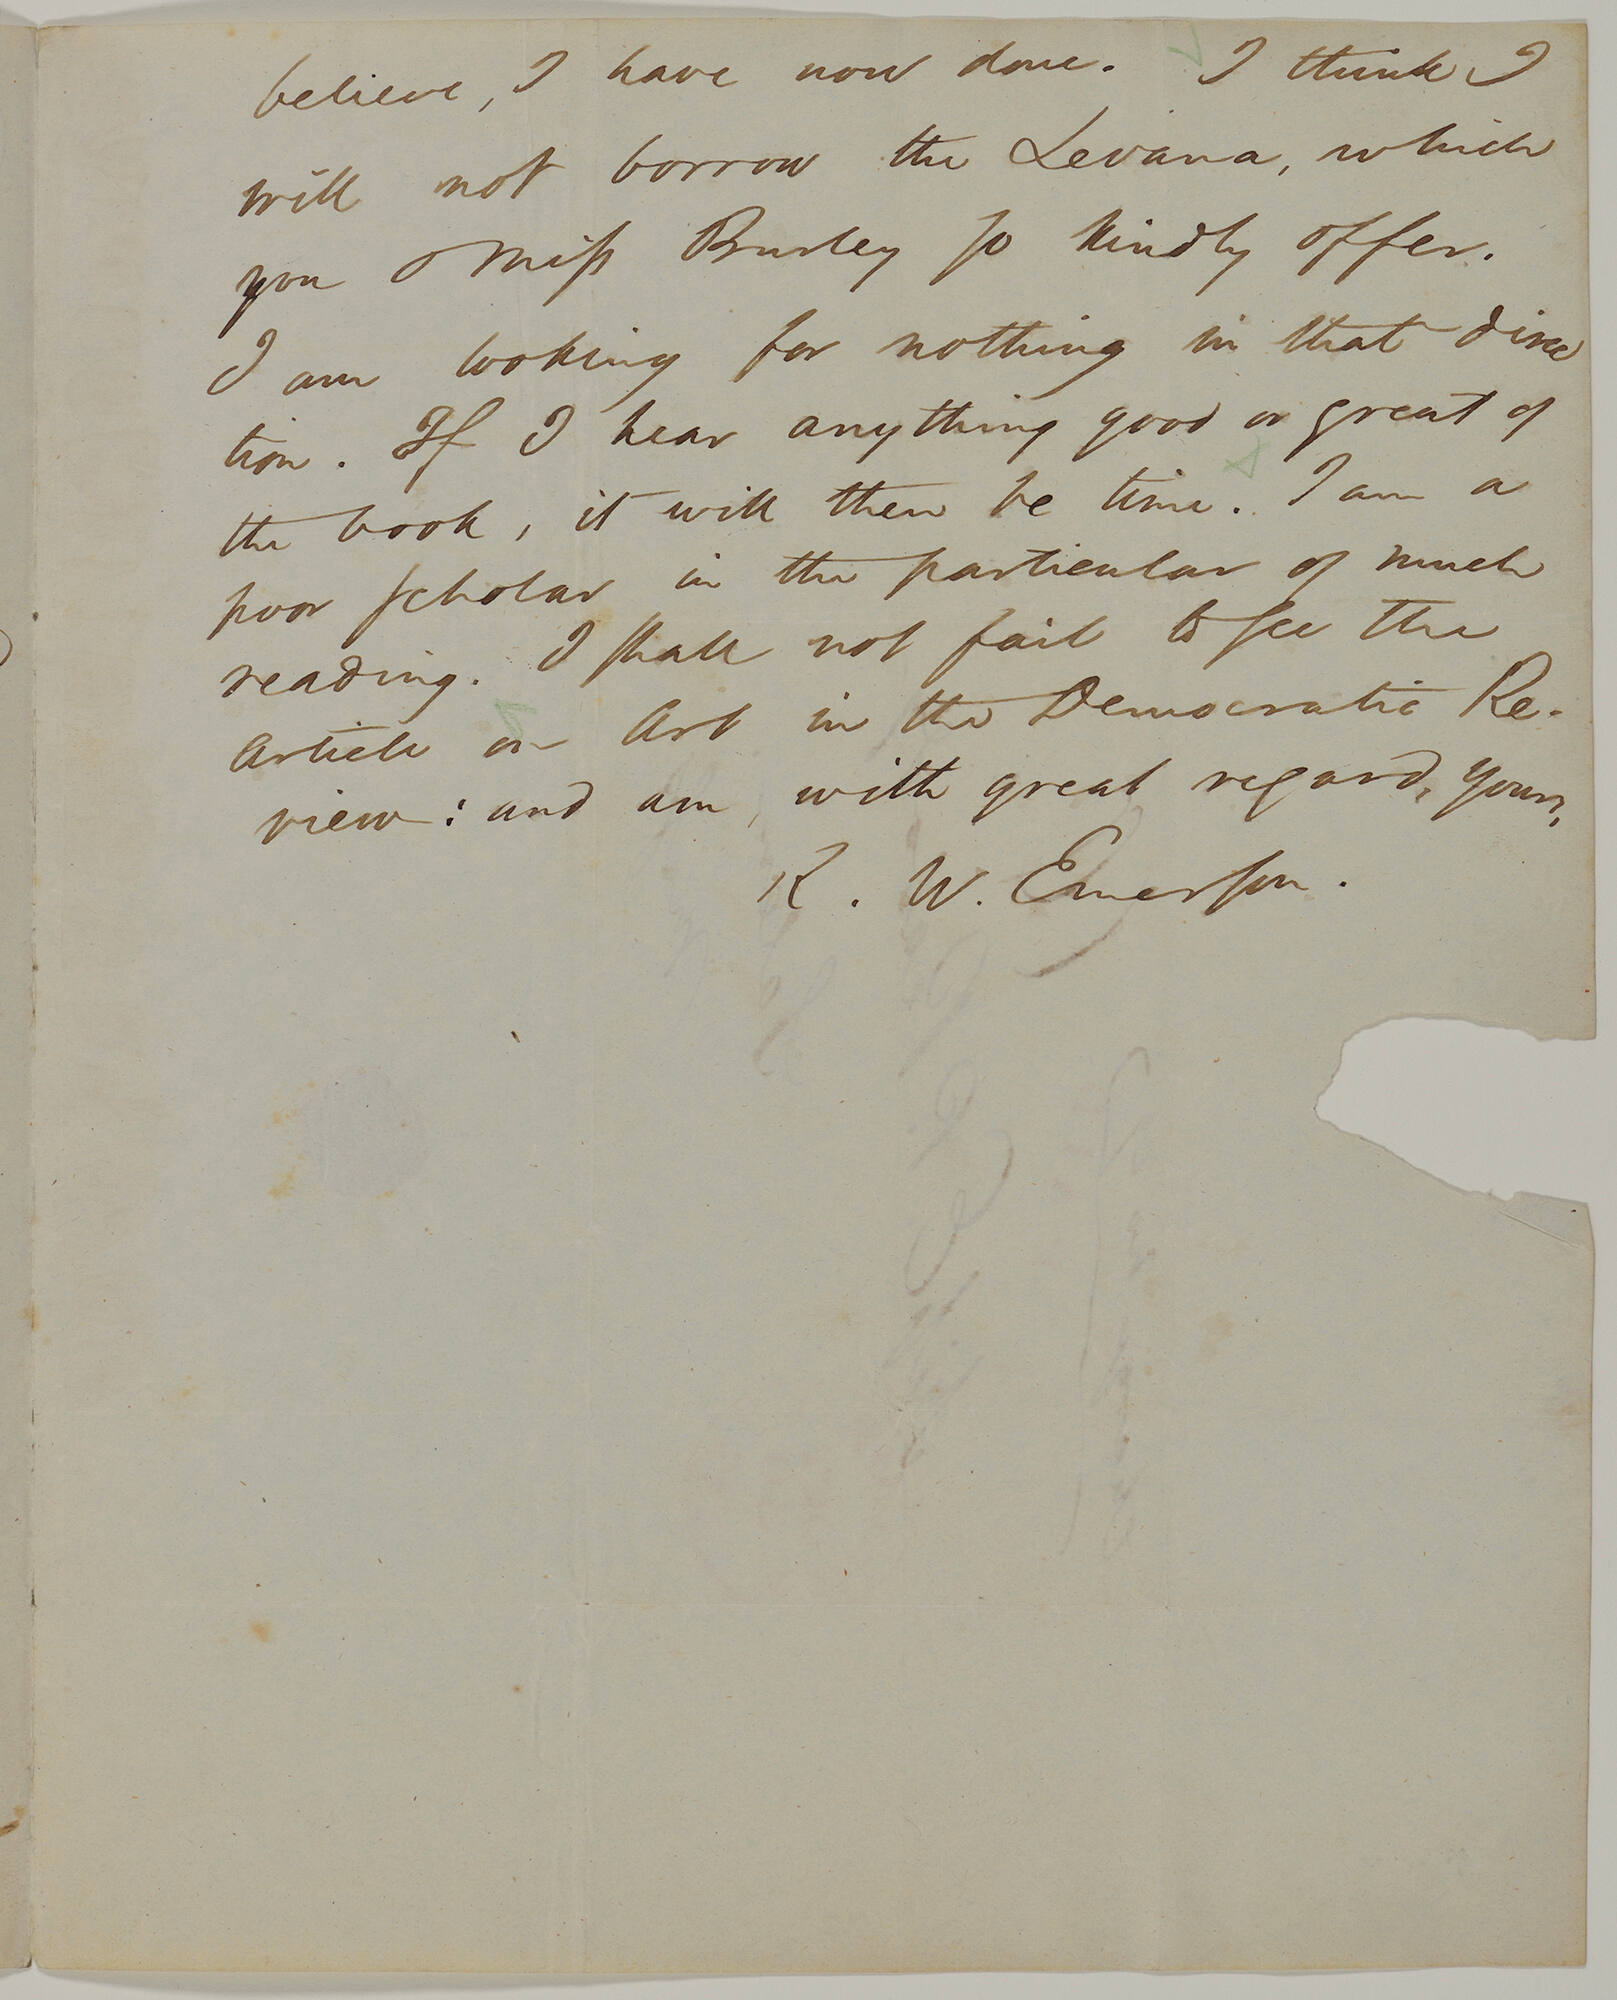 believe, I have now done. I think I
will not borrow the Levana, which
you & Miss Burley so kindly offer.
I am looking for nothing in that direc
tion. If I hear anything good or great of
the book, it will then be time. I am a
poor scholar in the particular of much
reading. I shall not fail to see the
Article on Art in the Democratic Re-
view: and am, with great regard, Yours,
R. W. Emerson.